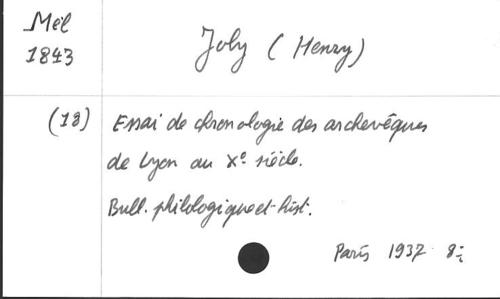 Mél
1843
Joly (Henry)
(18) Essai de chronologie des archevêques
de Lyon au Xe siècle.
Bull. philologique et hist.
Paris 1937 8-